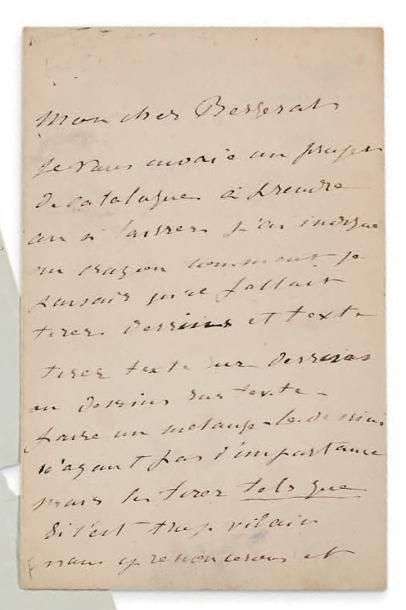 Mon cher Bergerat
je vous envoie un projet
de catalogue à prendre
ou à laisser j'ai indiqué
au crayon comment je
pensais qu'il fallait
tirer dessins et texte
tirer texte sur dessins
ou dessins sur texte -
faire un mélange le dessin
n'ayant pas d'importance
mais les tirer tels que
si c'est trop vilain
nous y renoncerons et